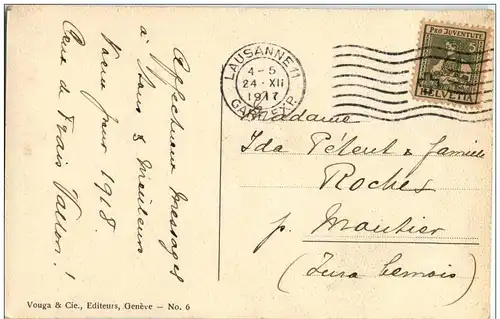 Affectueux Messages
à tous & Meilleurs
Voeux pour 1918.
Ceux de Frais Vallon!
Vouga & Cie., Editeurs, Genève — No. 6
LAUSANNE 11
4-5
24·XII
1917
GARE EXP.
PRO JUVENTUTE
5
HELVETIA
Madame
Ida Péteut & famille
Roches
p. Moutier
(Jura bernois)